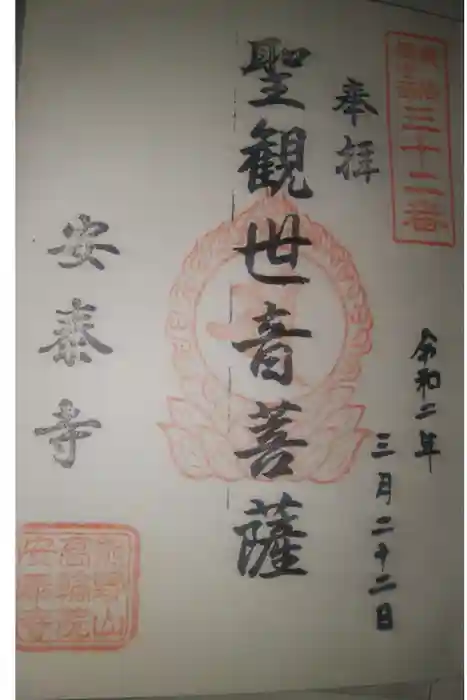 三十二番
奉拝
令和二年
三月二十二日
聖観世音菩薩
安泰寺
高輪院
安泰寺